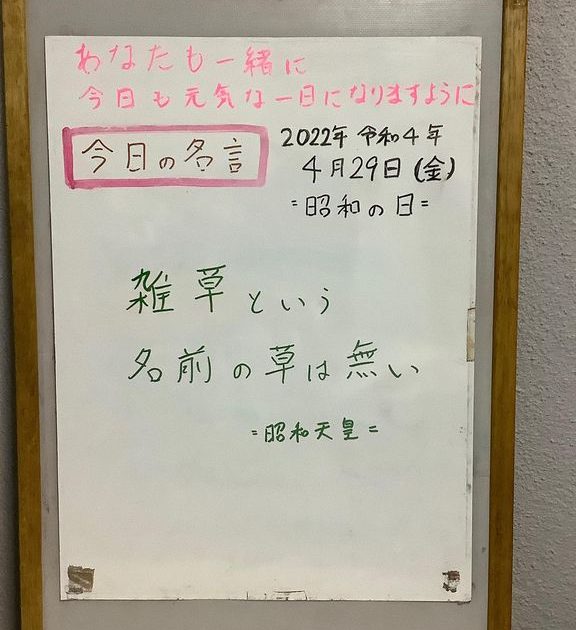 あなたも一緒に
今日も元気な一日になりますように
今日の名言
2022年 令和4年
4月29日(金)
=昭和の日=
雑草という
名前の草は無い
=昭和天皇=